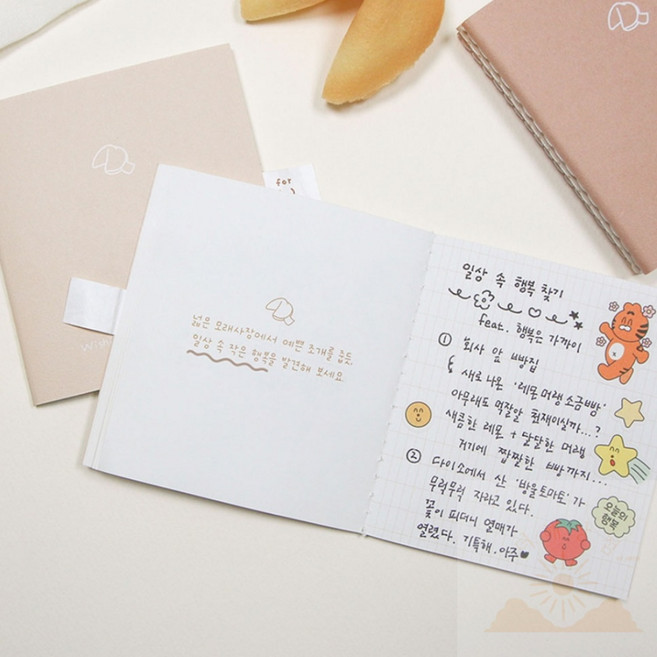 for
Wish
넓은 모래사장에서 예쁜 조개를 줍듯,
일상 속 작은 행복을 발견해 보세요.
일상 속 행복 찾기
feat. 행복은 가까이
① 회사 앞 빵집
새로 나온 '레몬 머랭 소금빵'
아무래도 먹잘알 천재이실까...?
새콤한 레몬 + 달달한 머랭
거기에 짭짤한 빵까지...
② 다이소에서 산 '방울토마토'가
무럭무럭 자라고 있다.
꽃이 피더니 열매가
열렸다. 기특해, 아주
오늘의
행복